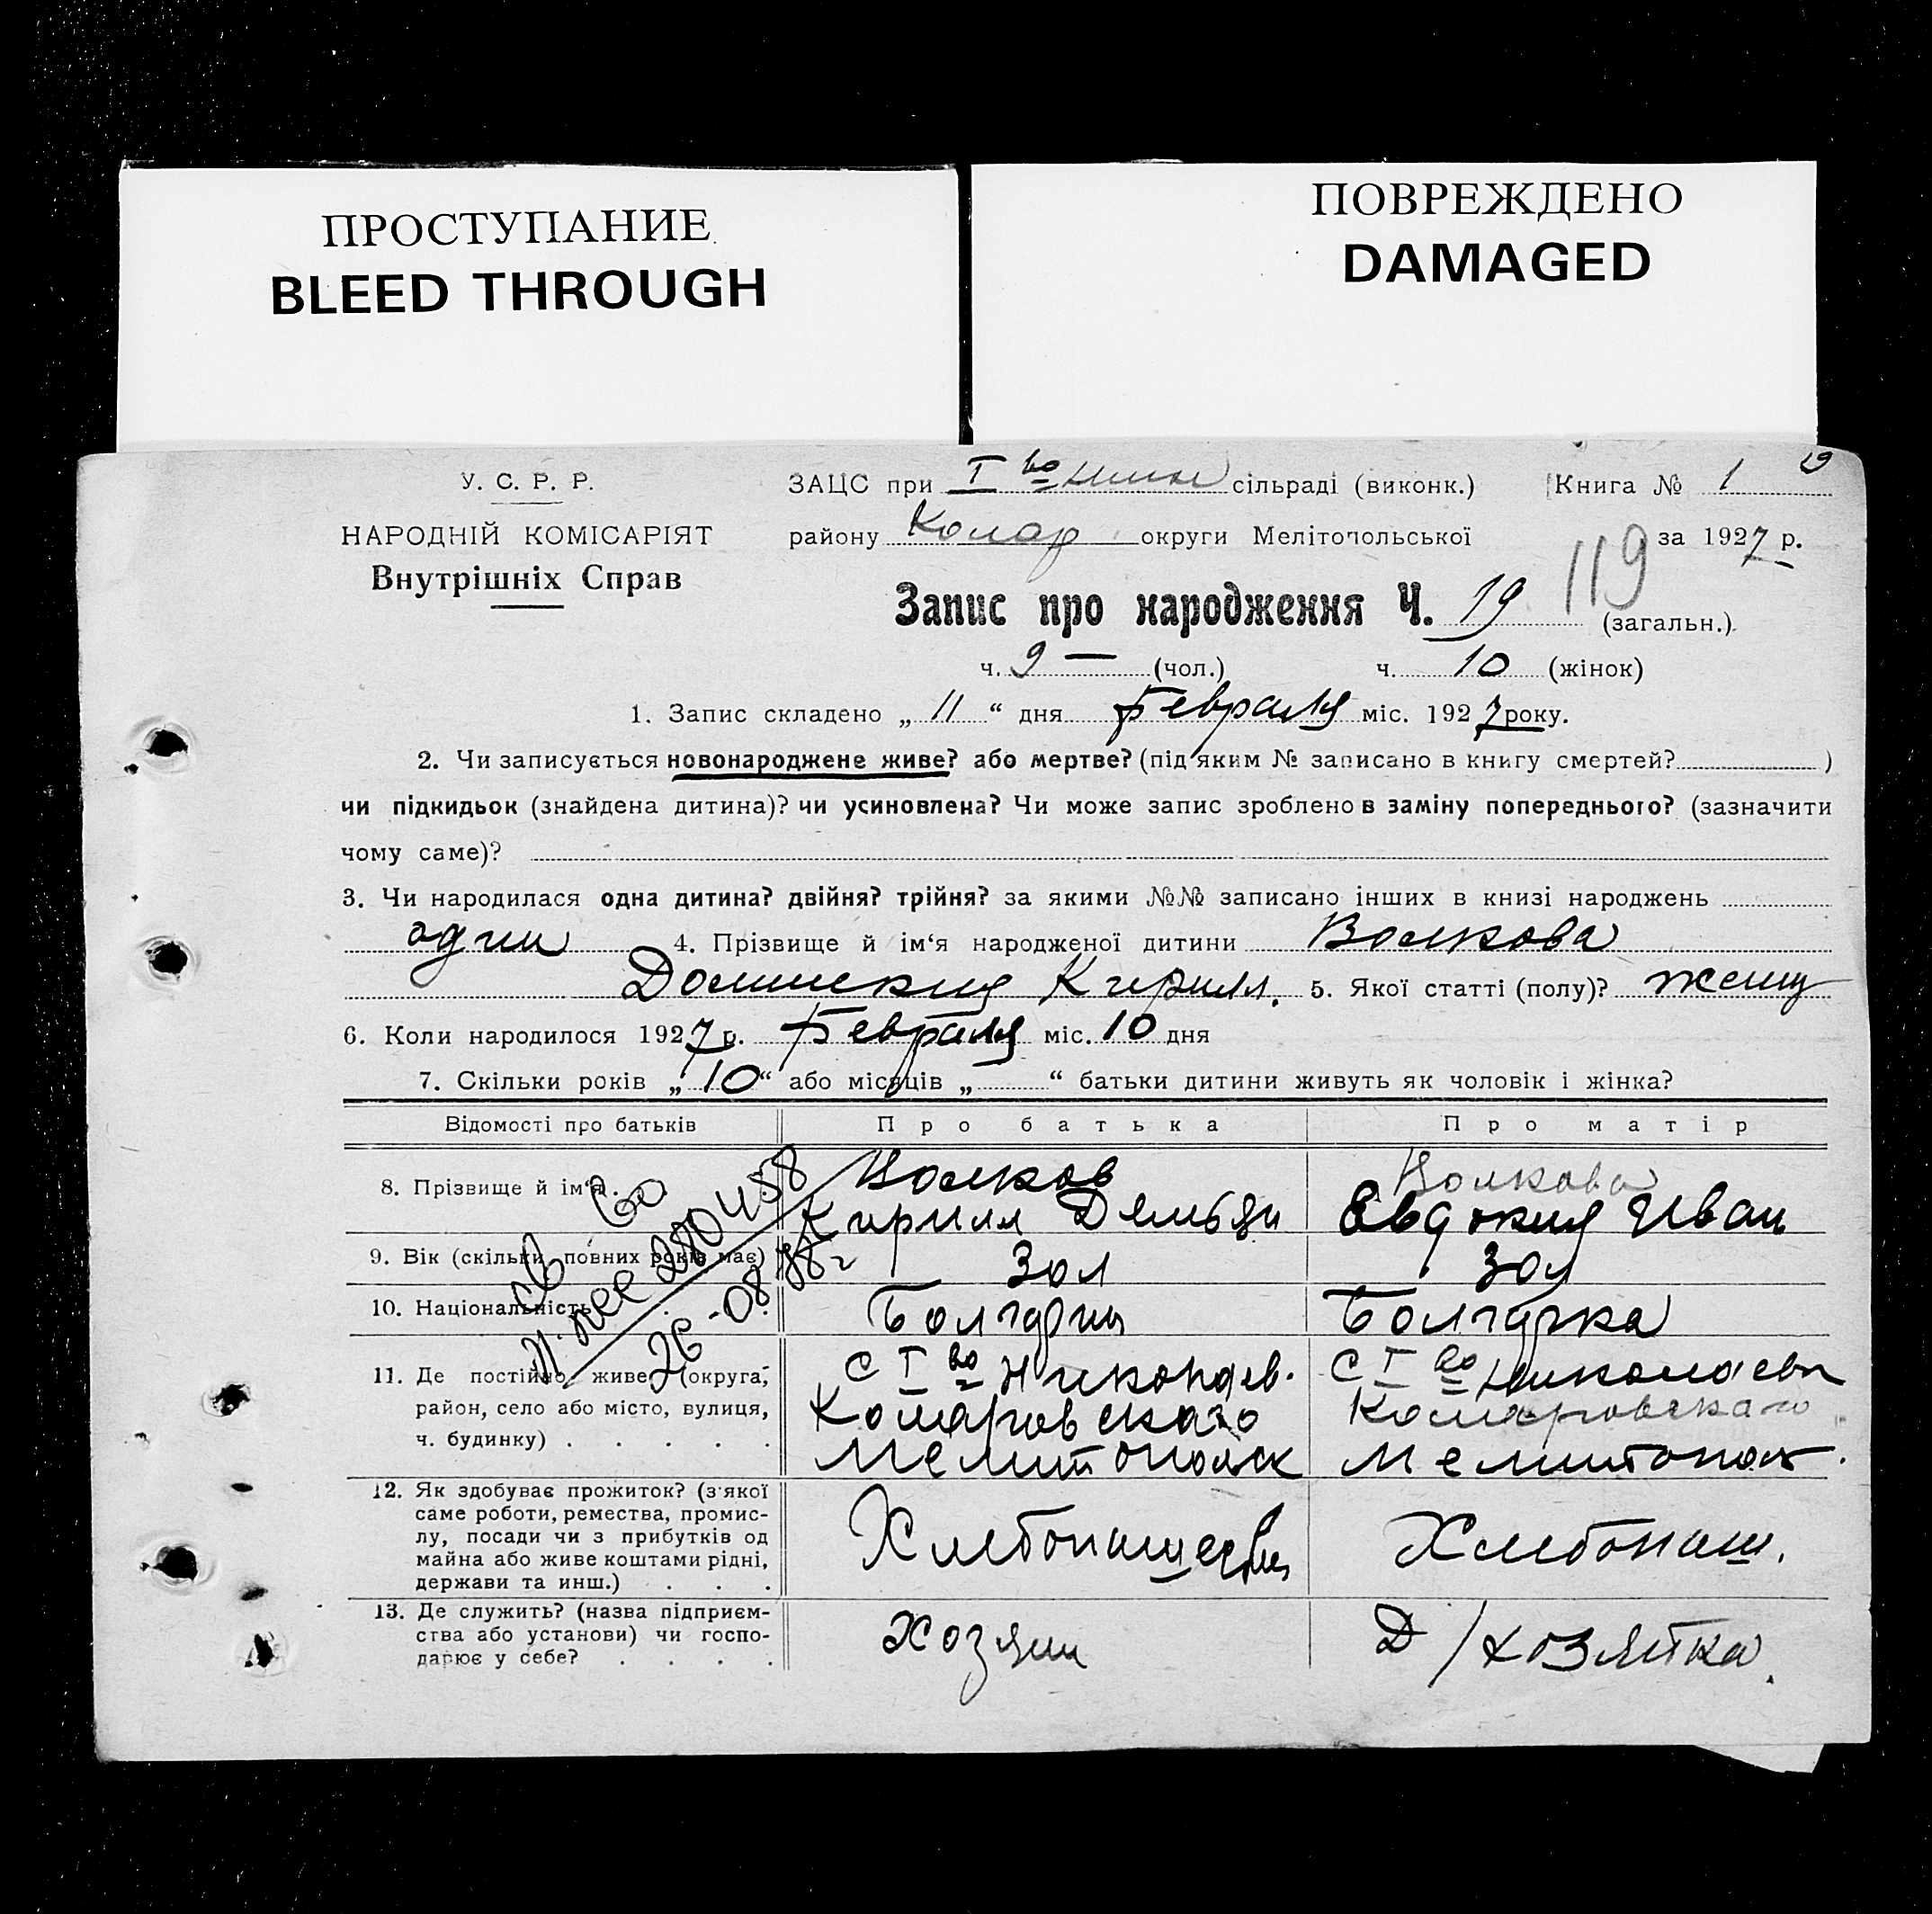 ПРОСТУПАНИЕ
BLEED THROUGH
ПОВРЕЖДЕНО
DAMAGED
У. С. Р. Р.
НАРОДНІЙ КОМІСАРІЯТ
Внутрішніх Справ
ЗАЦС при I во сільраді (виконк.) Книга № 1 19
району Комар округи Мелітопольської за 1927 р.
119
Запис про народження Ч. 19 (загальн.)
ч. 9 — (чол.) ч. 10 (жінок)
1. Запис складено „ 11 “ дня Февраля міс. 1927 року.
2. Чи записується новонароджене живе? або мертве? (під яким № записано в книгу смертей? )
чи підкидьок (знайдена дитина)? чи усиновлена? Чи може запис зроблено в заміну попереднього? (зазначити
чому саме)?
3. Чи народилася одна дитина? двійня? трійня? за якими №№ записано інших в книзі народжень
один 4. Прізвище й ім‘я народженої дитини Волкова
Домникия Кирилл. 5. Якої статті (полу)? женщ
6. Коли народилося 1927 р. Февраля міс. 10 дня
7. Скільки років „ 10 “ або місяців „ “ батьки дитини живуть як чоловік і жінка?
Відомості про батьків Про батька Про матір
8. Прізвище й ім‘я. Волков Волкова
Кирилл Демьян Евдокия Иван
9. Вік (скільки повних років має) 30 л 30 л
10. Національність Болгарин Болгарка
11. Де постійно живе (округа, С I во Николаев. С I во Николаевк
район, село або місто, вулиця, Комаровского Комаровского
ч. будинку) Мелитопольск Мелитопол.
12. Як здобуває прожиток? (з'якої
саме роботи, ремества, промис-
лу, посади чи з прибутків од Хлебопашеств Хлебопаш.
майна або живе коштами рідні,
держави та инш.)
13. Де служить? (назва підприєм-
ства або установи) чи госпо- Хозяин Д/хозяйка.
дарює у себе?
280458
26-08 88 г